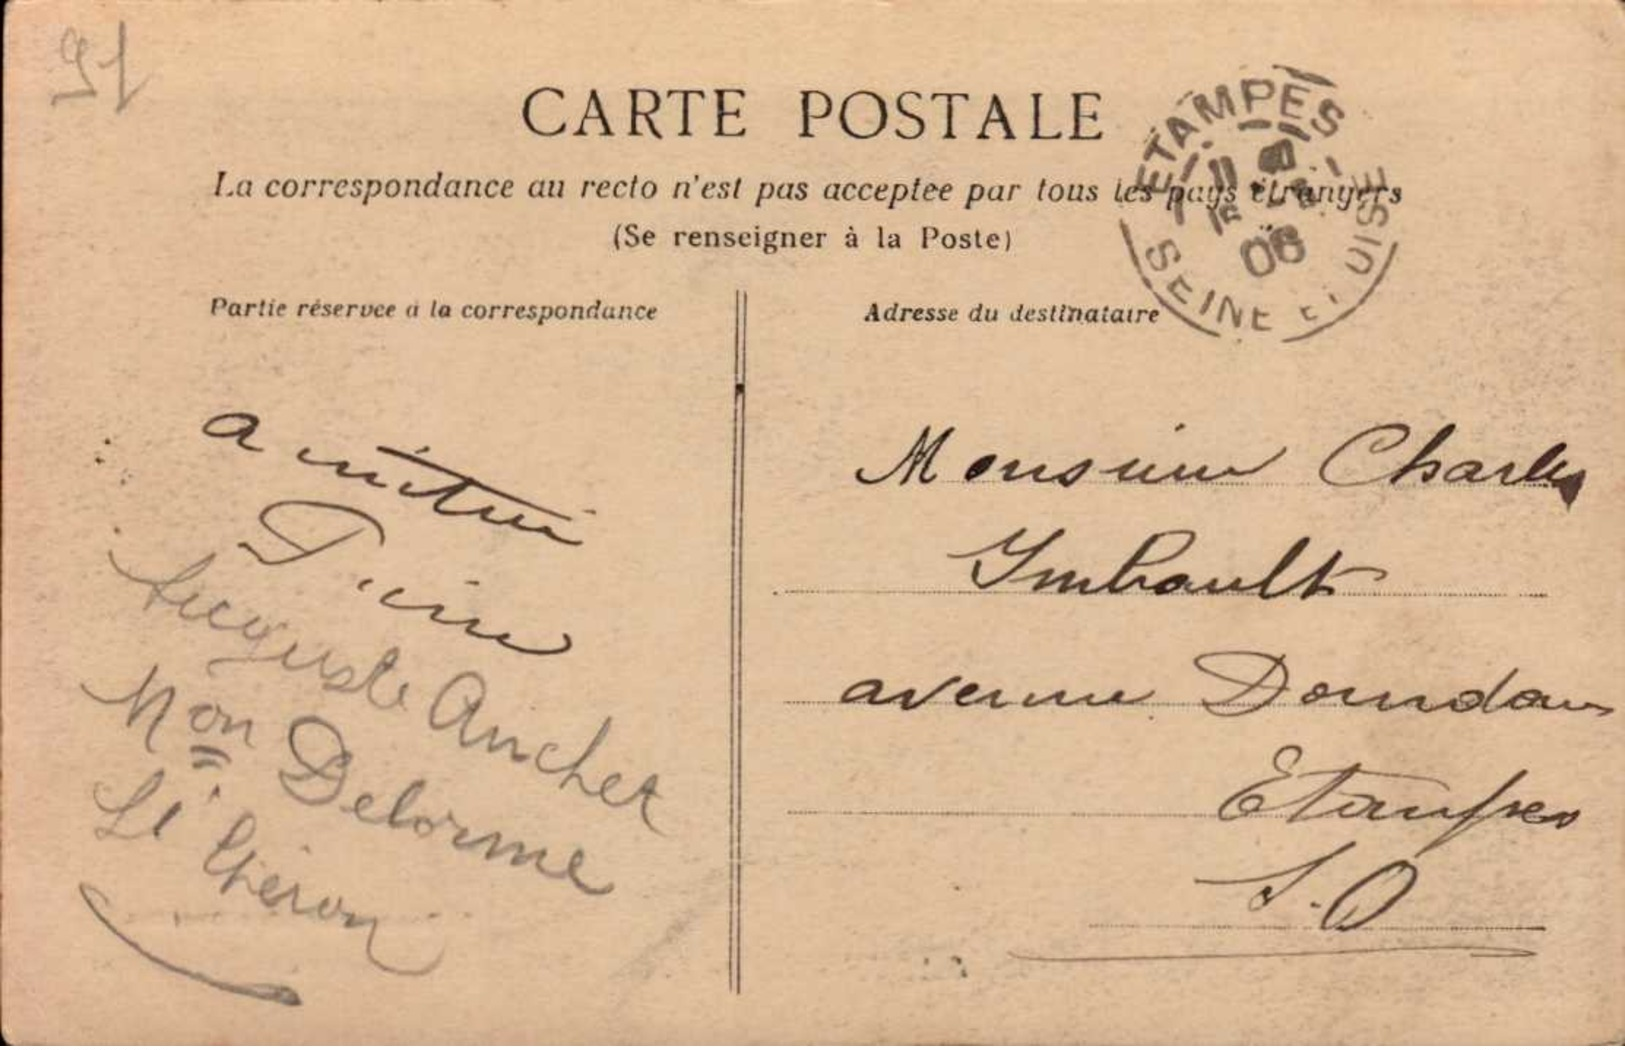 CARTE POSTALE
La correspondance au recto n'est pas acceptee par tous les pays étrangers
(Se renseigner à la Poste)
Partie réservee à la correspondance
Adresse du destinataire
ETAMPES
08
SEINE ET OISE
a
Auguste Anchet
Mon Delorme
Monsieur Charles
Imbault
avenue Dourdan
Etampes
S.O